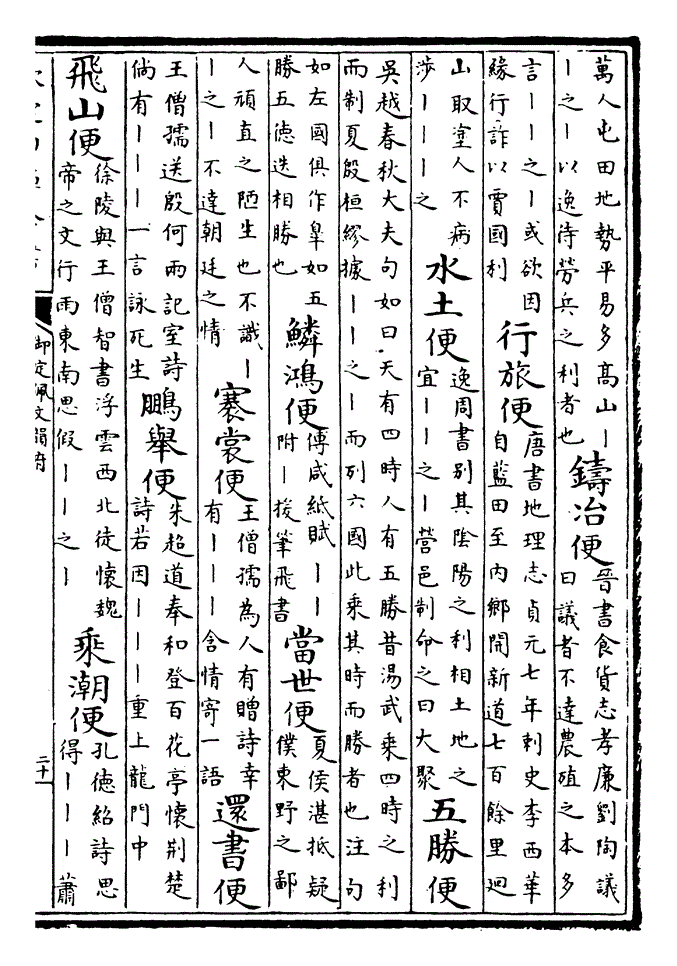 萬人屯田地勢平易多髙山｜
｜之｜以逸待勞兵之利者也
鑄冶便
晉書食貨志孝廉劉陶議
曰議者不達農殖之本多
言｜｜之｜或欲因
緣行詐以賈國利
行旅便
唐書地理志貞元七年刺史李西華
自藍田至内鄉開新道七百餘里廻
山取塗人不病
涉｜｜｜之
水土便
逸周書别其陰陽之利相土地之
宜｜｜之｜營邑制命之曰大聚
五勝便
吳越春秋大夫句如曰天有四時人有五勝昔湯武乘四時之利
而制夏殷桓繆據｜｜之｜而列六國此乘其時而勝者也注句
如左國俱作臯如五
勝五徳迭相勝也
鱗鴻便
傅咸紙賦｜｜
附｜援筆飛書
當世便
夏侯湛抵疑
僕東野之鄙
人頑直之陋生也不識｜
｜之｜不達朝廷之情
褰裳便
王僧孺為人有贈詩幸
有｜｜｜含情寄一語
還書便
王僧孺送殷何兩記室詩
倘有｜｜｜一言詠死生
鵬舉便
朱超道奉和登百花亭懷荆楚
詩若因｜｜｜重上龍門中
飛山便
徐陵與王僧智書浮雲西北徒懷魏
帝之文行雨東南思假｜｜之｜
乘潮便
孔德紹詩思
得｜｜｜蕭
御定佩文韻府
二十